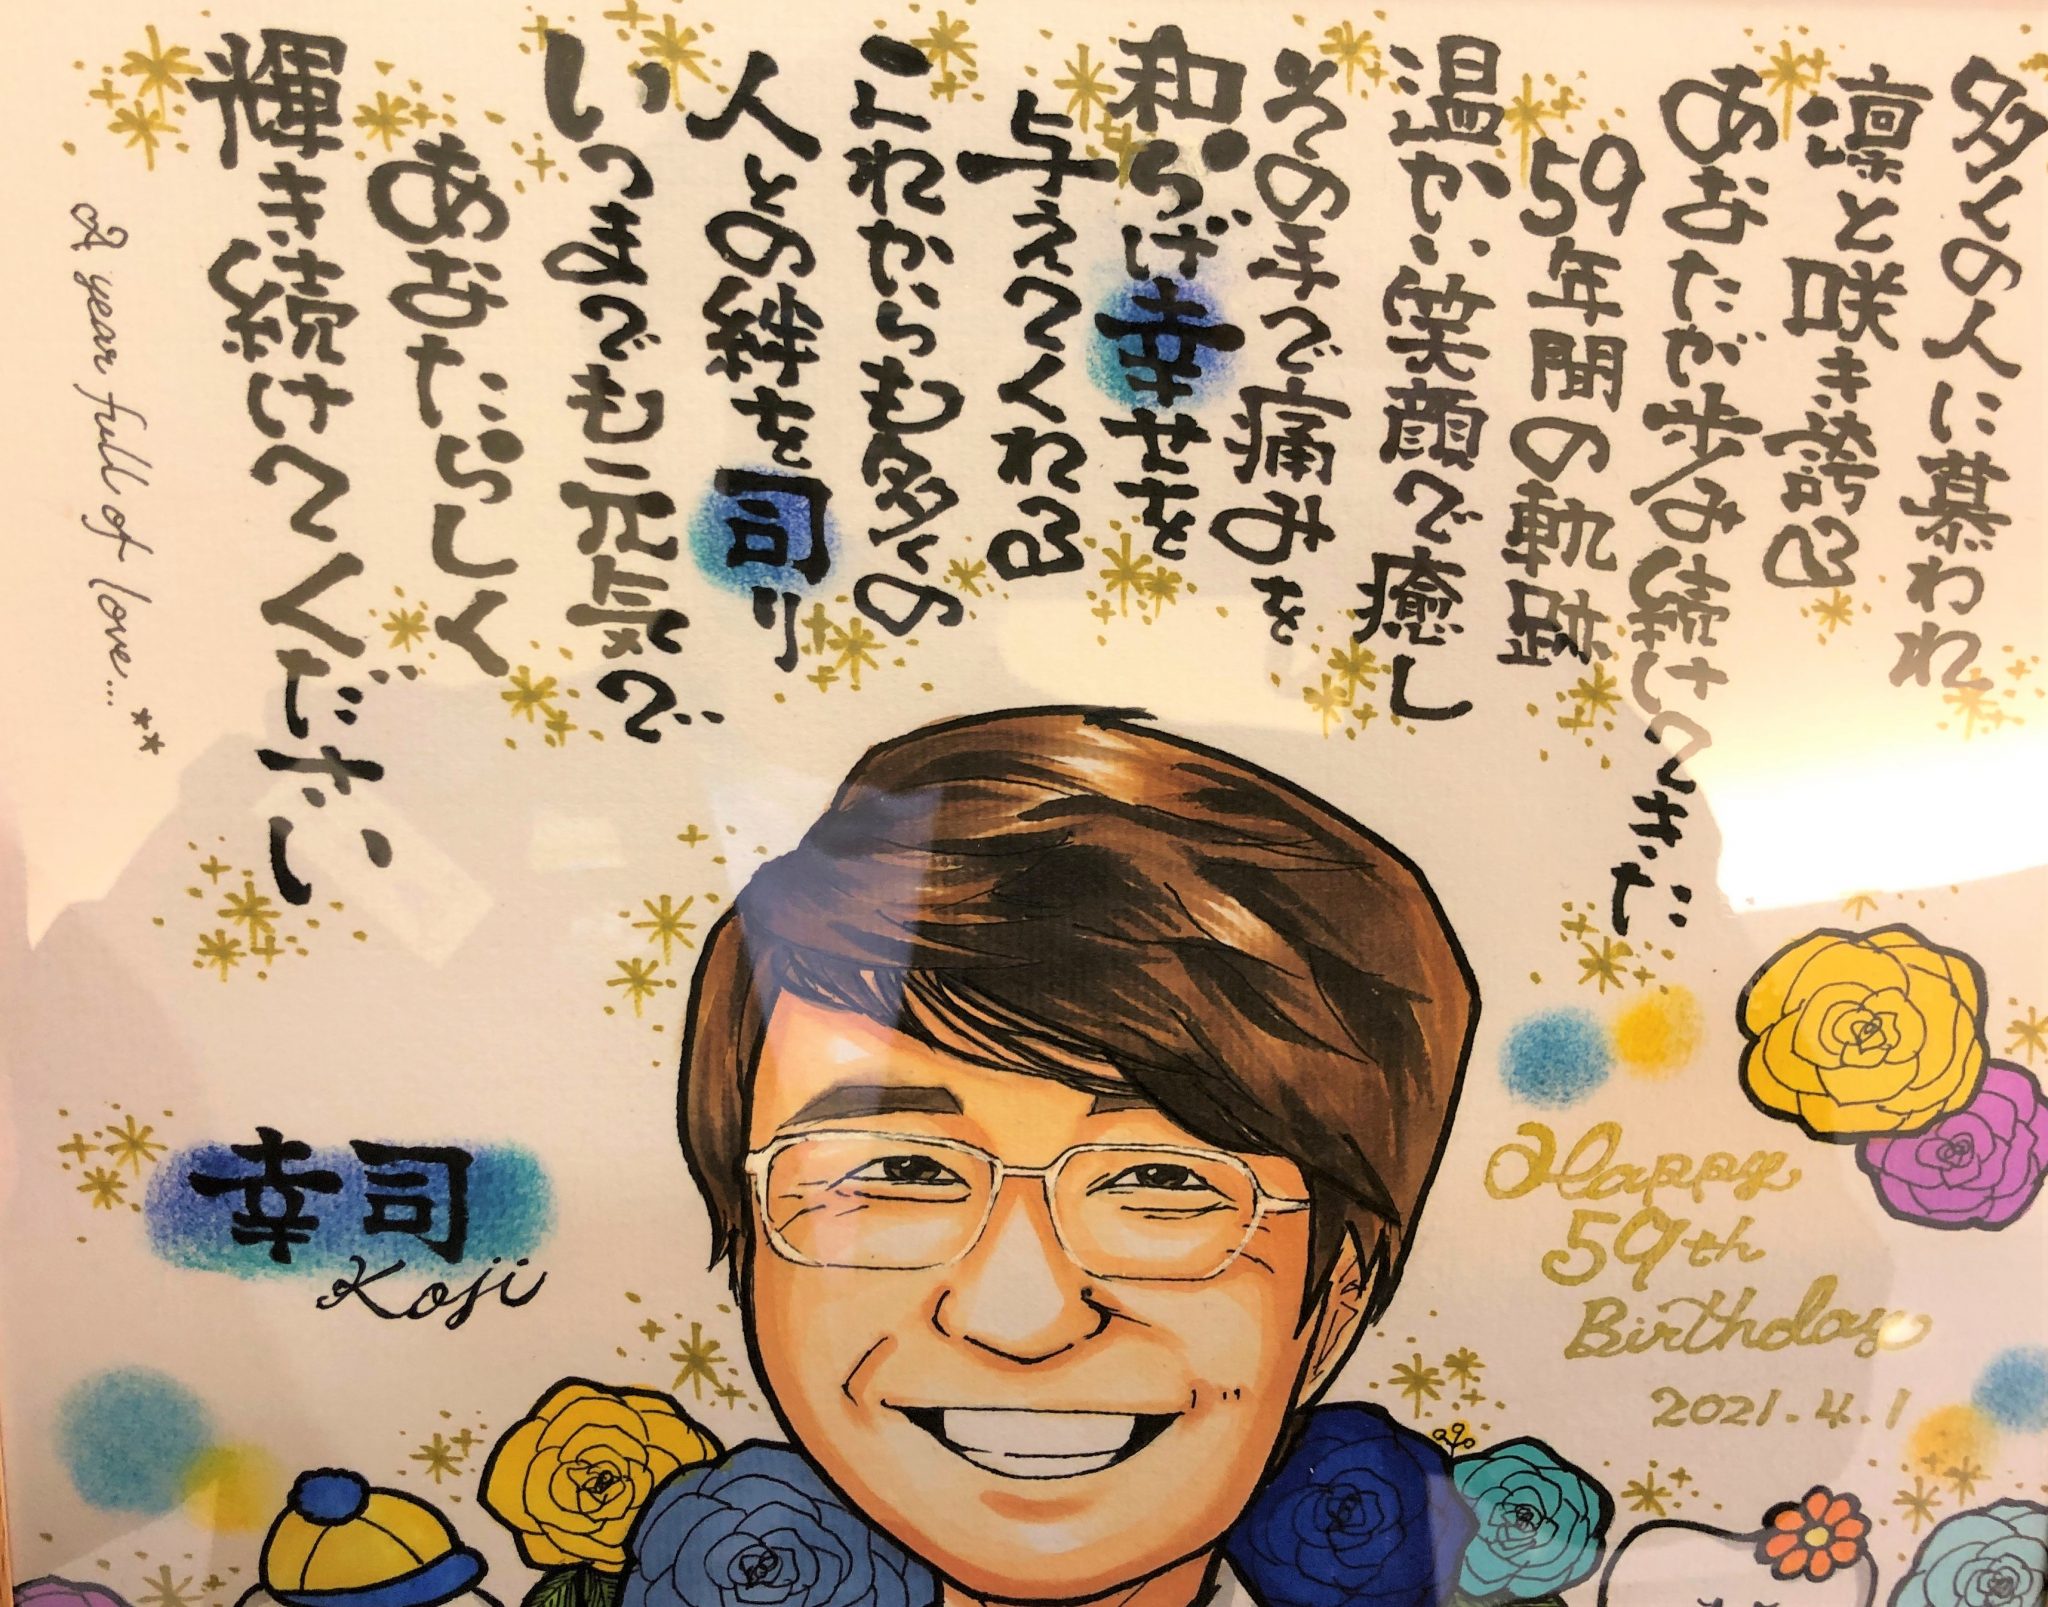 多くの人に慕われ
凛と咲き誇る
あなたが歩み続けてきた
59年間の軌跡
温かい笑顔で癒し
その手で痛みを
和らげ幸せを
与えてくれる
これからも多くの
人との絆を司り
いつまでも元気で
あなたらしく
輝き続けてください
A year full of love...**
幸司
Koji
Happy
59th
Birthday
2021.4.1